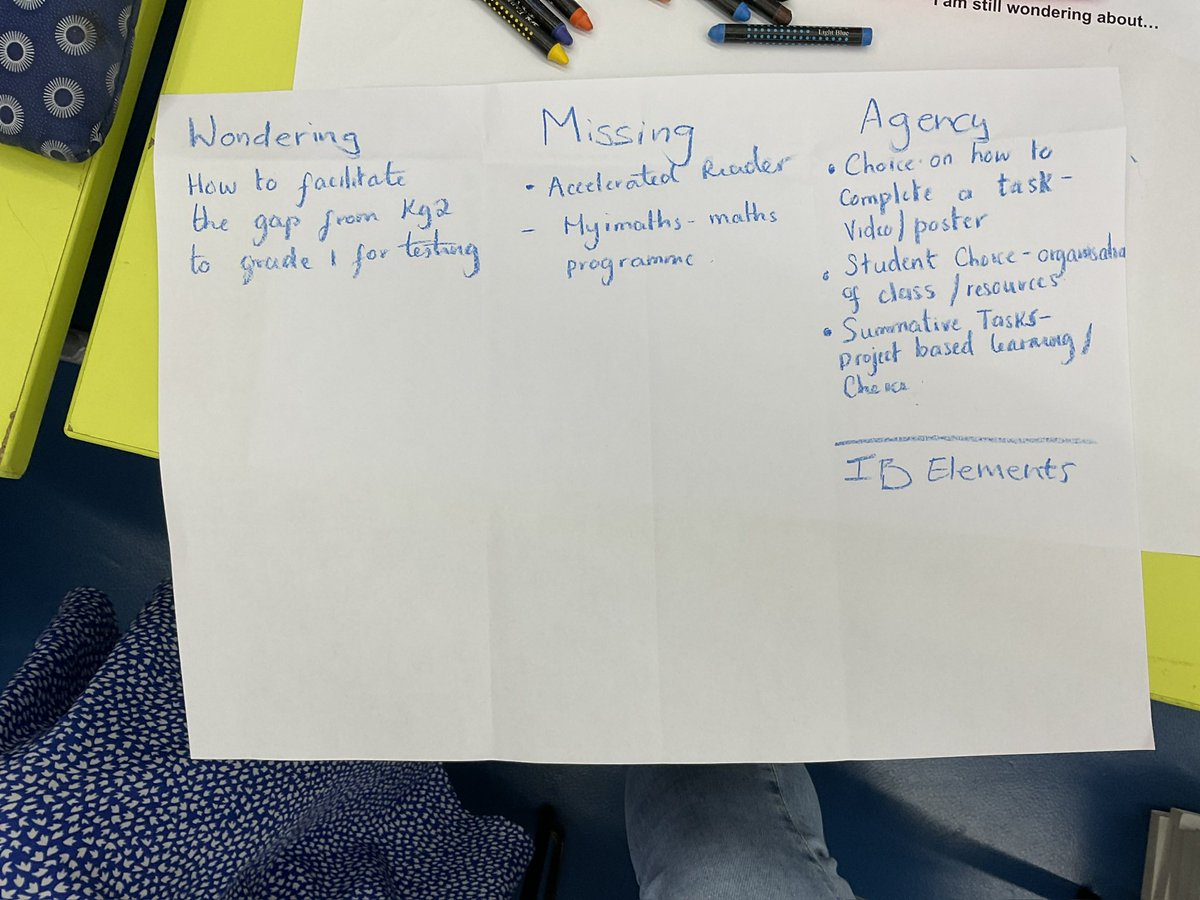 I am still wondering about…
Light Blue
Wondering
How to facilitate
the gap from Kg2
to grade 1 for testing
Missing
• Accelerated Reader
- Myimaths - maths
programme
Agency
• Choice on how to
Complete a task -
Video/poster
• Student Choice - organisation
of class / resources
• Summative Tasks -
project based learning /
Choice
IB Elements